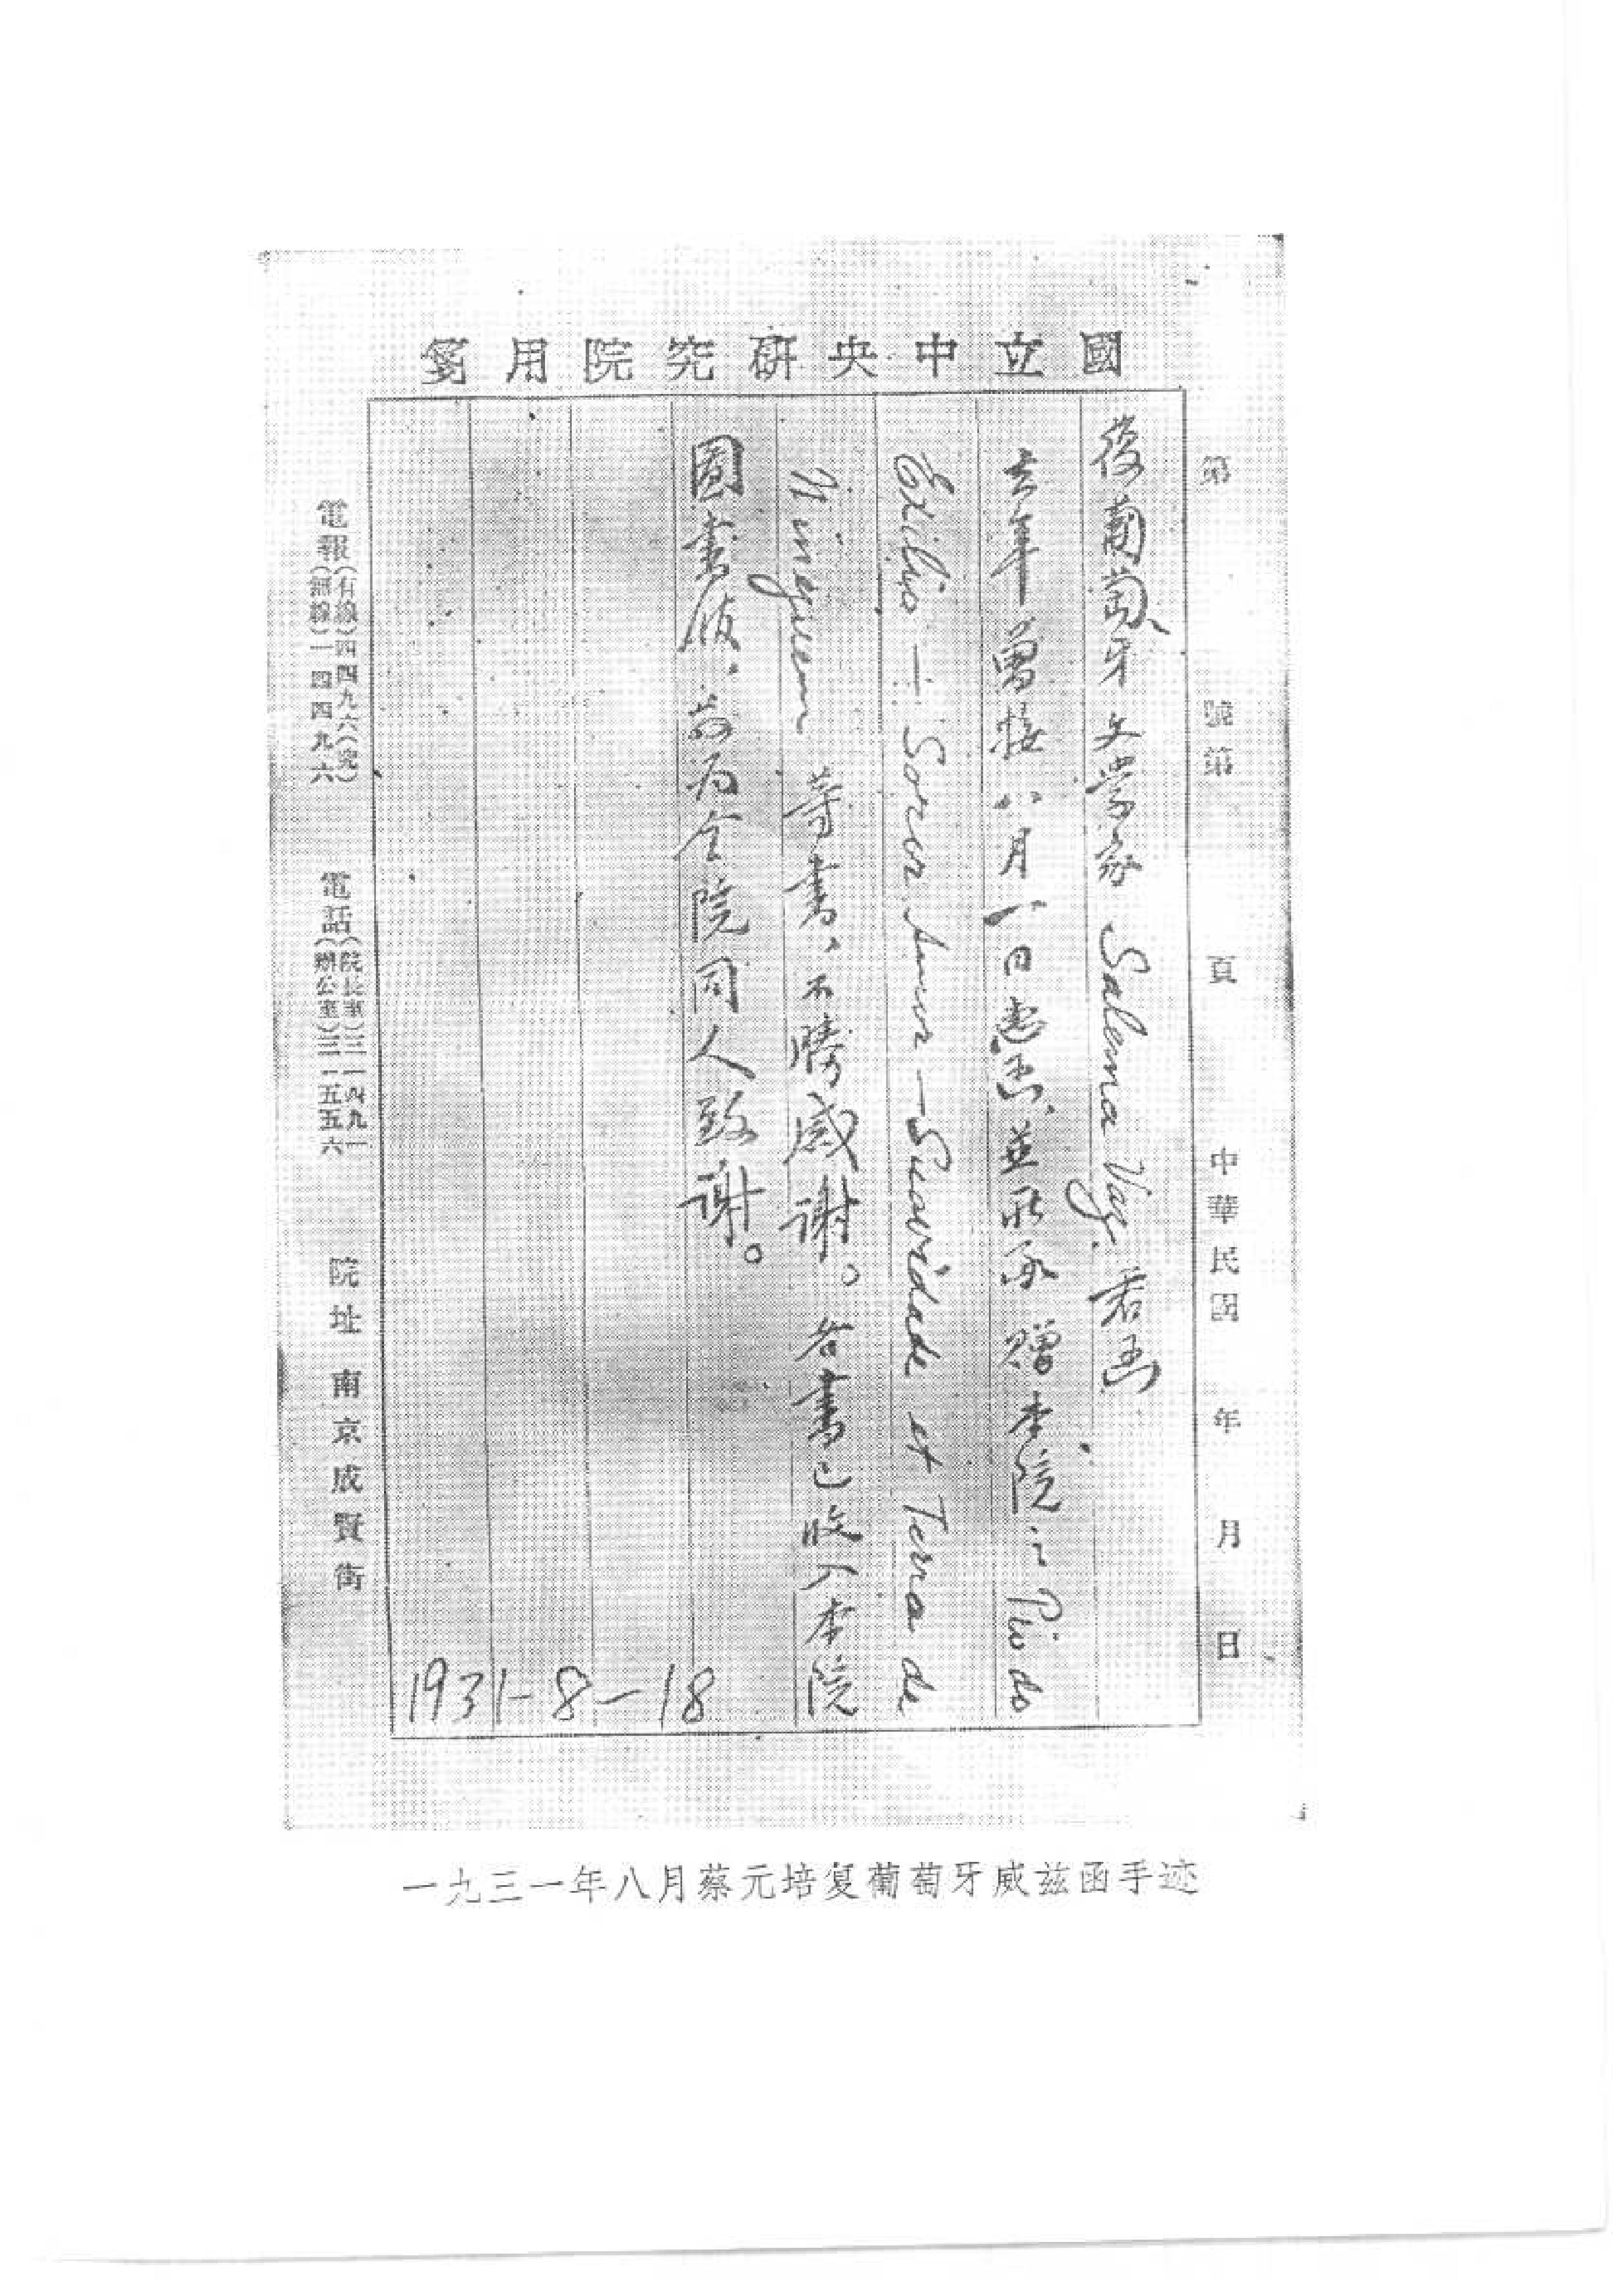 國立中央研究院用箋
第　號第　頁　中華民國　年　月　日
復葡萄牙文學家 Salema Vaz 君函
去年曾接八月一日惠函，並承 贈本院之 Pio do
Exilio — Soror Amor — Suavidade et Terra de
Ninguem 等書，不勝感谢。各書已收入本院
圖書館，茲为仝院同人致谢。
1931-8-18
電報（有線）四四九六（究）
（無線）一四四九六
電話（院長室）三一四九一
（辦公室）三一五五六
院址 南京成賢街
一九三一年八月蔡元培复葡萄牙威兹函手迹